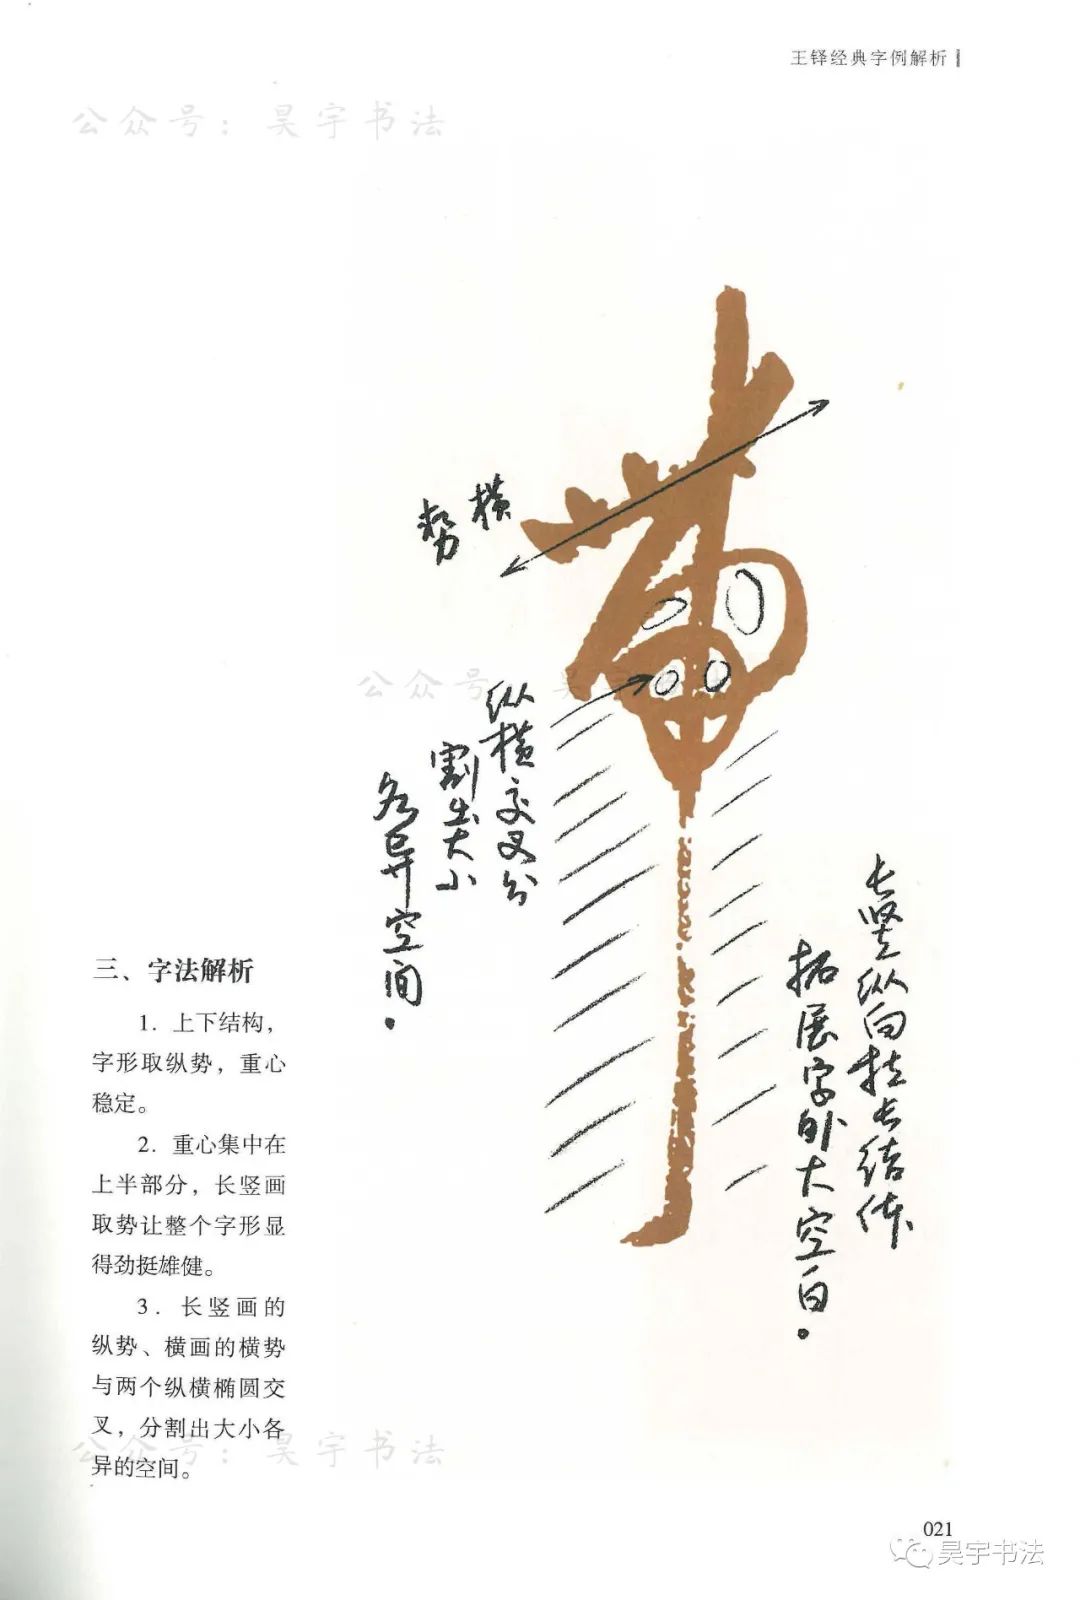 王铎经典字例解析
公众号：昊宇书法
横
势
公众号：昊宇
纵横交叉分
割出大小
各异空间。
长竖纵向拉长结体
拓展字外大空白。
三、字法解析
1. 上下结构，
字形取纵势，重心
稳定。
2. 重心集中在
上半部分，长竖画
取势让整个字形显
得劲挺雄健。
3. 长竖画的
纵势、横画的横势
与两个纵横椭圆交
叉，分割出大小各
异的空间。
公众号：昊宇书法
021
昊宇书法